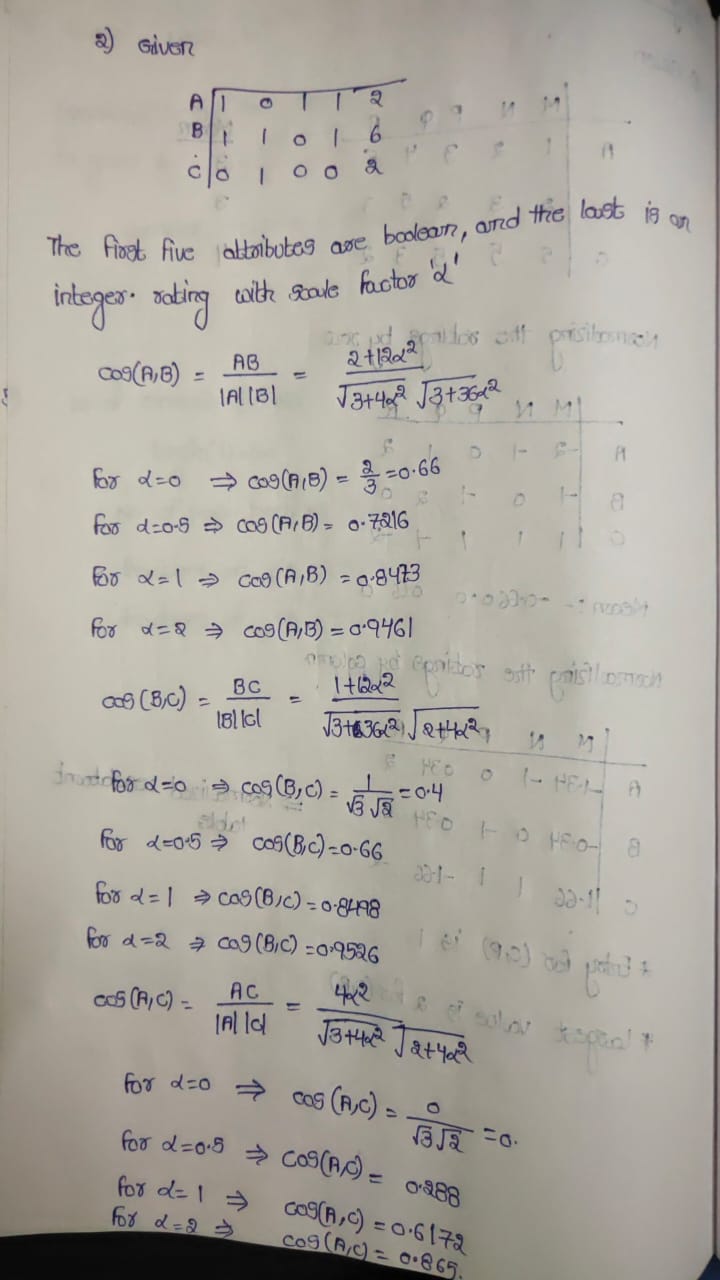 2) Given
A 1 0 1 1 2
B 1 1 0 1 6
C 0 1 0 0 2
The first five attributes are boolean, and the last is an
integer. rating with scale factor 'α'
cos(A,B) = AB / |A||B| = 2+12α² / √3+4α² √3+36α²
for α=0 ⇒ cos(A,B) = 2/3 = 0.66
for α=0.5 ⇒ cos(A,B) = 0.7216
for α=1 ⇒ cos(A,B) = 0.8473
for α=2 ⇒ cos(A,B) = 0.9461
cos(B,C) = BC / |B||C| = 1+12α² / √3+36α² √2+4α²
for α=0 ⇒ cos(B,C) = 1/√3√2 = 0.4
for α=0.5 ⇒ cos(B,C) = 0.66
for α=1 ⇒ cos(B,C) = 0.8498
for α=2 ⇒ cos(B,C) = 0.9526
cos(A,C) = AC / |A||C| = 4α² / √3+4α² √2+4α²
for α=0 ⇒ cos(A,C) = 0/√3√2 = 0.
for α=0.5 ⇒ cos(A,C) = 0.288
for α=1 ⇒ cos(A,C) = 0.6172
for α=2 ⇒ cos(A,C) = 0.865.